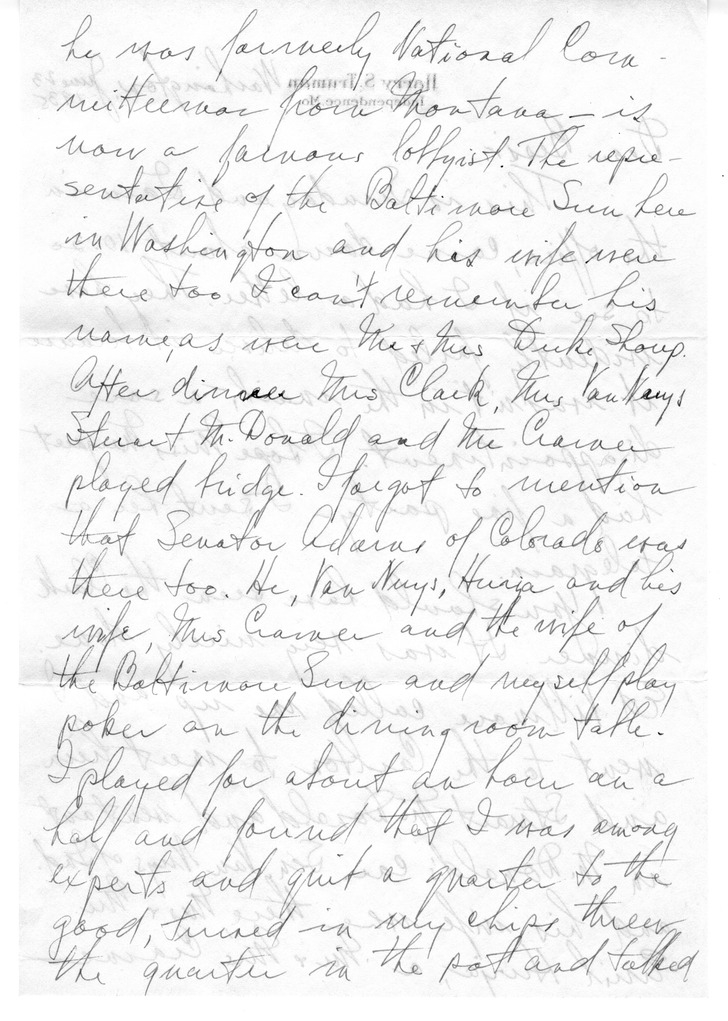 he was formerly National Com-
mitteeman from Montana - is
now a famous lobbyist. The repre-
sentative of the Baltimore Sun here
in Washington and his wife were
there too I can't remember his
name, as were Mr & Mrs Duke Shoup.
After dinner Mrs Clark, Mrs Van Nuys
Stuart McDonald and Mr Cramer
played bridge. I forgot to mention
that Senator Adams of Colorado was
there too. He, Van Nuys, Hurja and his
wife, Mrs Cramer and the wife of
the Baltimore Sun and myself play
poker on the dining room table.
I played for about an hour an a
half and found that I was among
experts and quit a quarter to the
good, turned in my chips threw
the quarter in the pot and talked